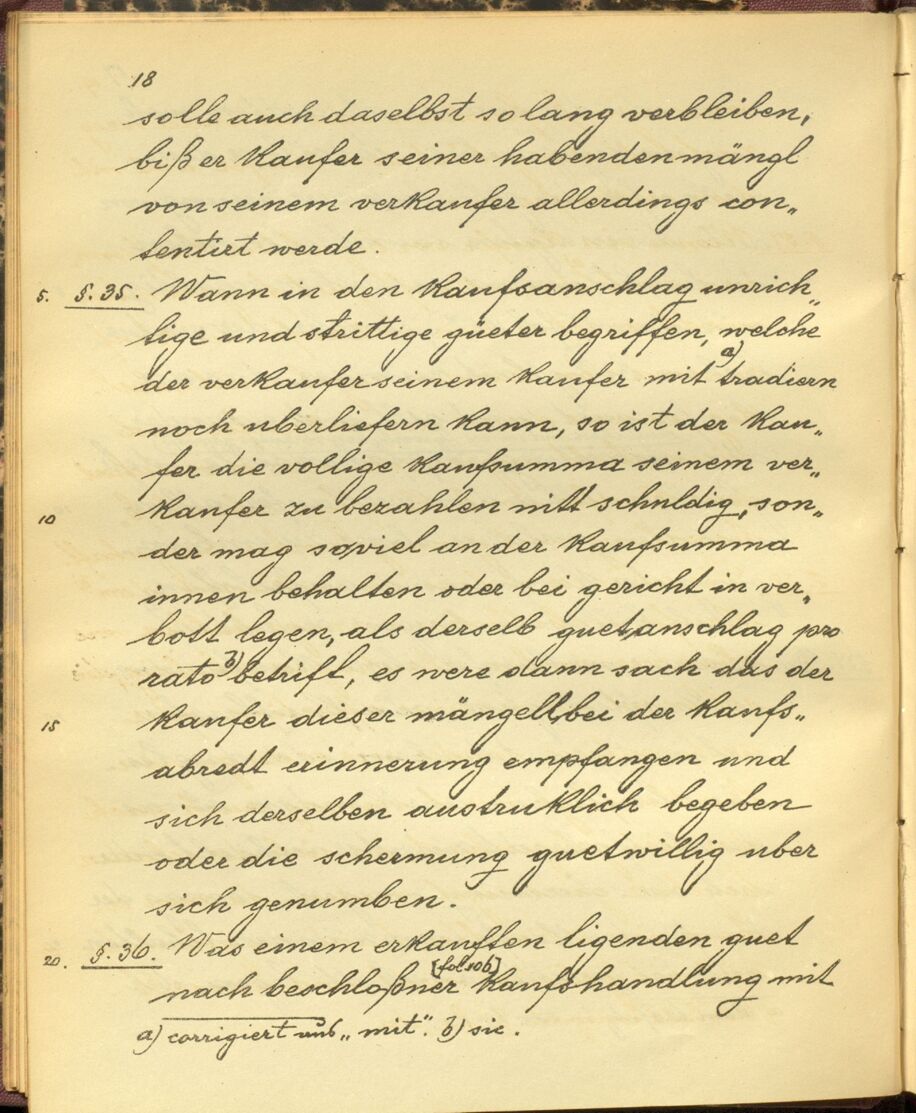 18
solle auch daselbst so lang verbleiben,
biß er Kaufer seiner habenden mängl
von seinem verkaufer allerdings con„
tentirt werde.
5. §. 35. Wann in den Kaufsanschlag unrich„
tige und strittige güeter begriffen, welche
der verkaufer seinem Kaufer mit a) tradiern
noch uberliefern kann, so ist der Kau„
fer die vollige Kaufsumma seinem ver„
10 Kaufer zu bezahlen nitt schuldig, son„
der mag soviel an der Kaufsumma
innen behalten oder bei gericht in ver„
bott legen, als derselb guetanschlag pro
rato b) betrift, es were dann sach das der
15 Kaufer dieser mängell bei der Kaufs„
abredt erinnerung empfangen und
sich derselben austruklich begeben
oder die schermung guetwillig uber
sich genumben.
20. §. 36. Was einem erkauften ligenden guet
nach beschloßner [fol 10b] Kaufshandlung mit
a) corrigiert aus „mit". b) sic.